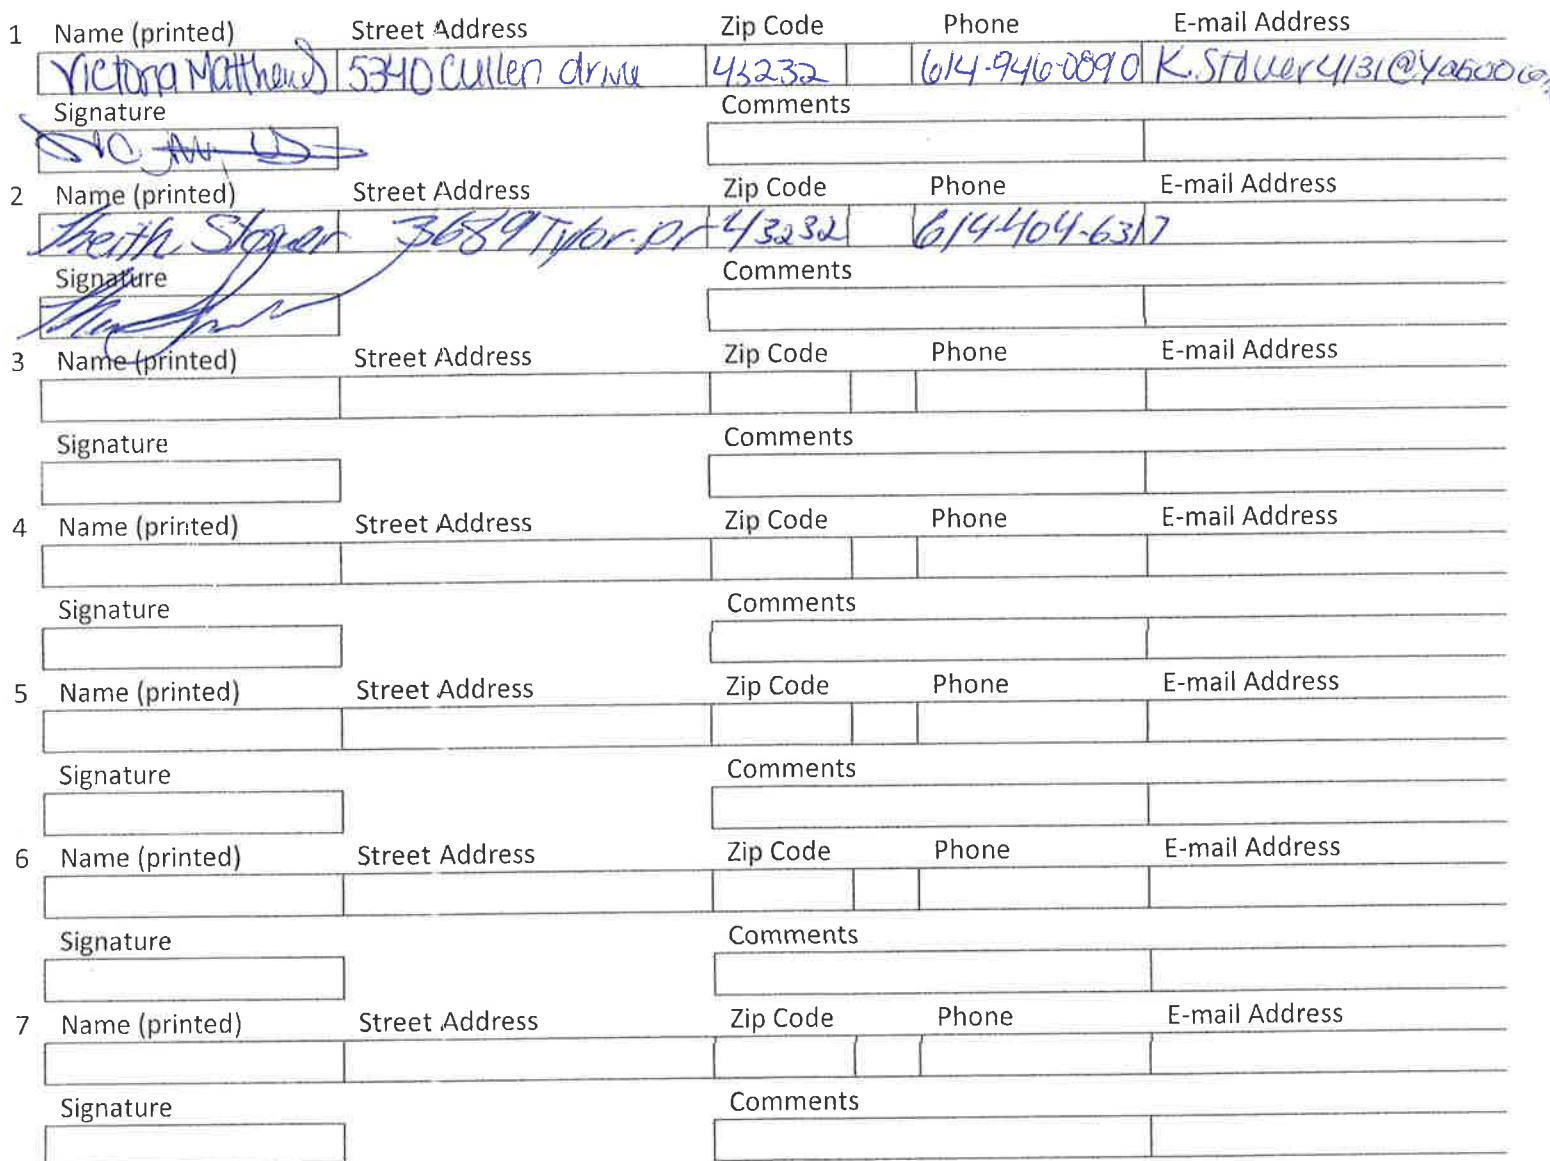 1 Name (printed) Street Address Zip Code Phone E-mail Address
Victoria Matthews 5340 Cullen drive 43232 614-946-0890 K.Stover4131@Yahoo.com
Signature Comments
2 Name (printed) Street Address Zip Code Phone E-mail Address
Kheith Stover 3689 Tylor. Dr 43232 614-404-6317
Signature Comments
3 Name (printed) Street Address Zip Code Phone E-mail Address
Signature Comments
4 Name (printed) Street Address Zip Code Phone E-mail Address
Signature Comments
5 Name (printed) Street Address Zip Code Phone E-mail Address
Signature Comments
6 Name (printed) Street Address Zip Code Phone E-mail Address
Signature Comments
7 Name (printed) Street Address Zip Code Phone E-mail Address
Signature Comments